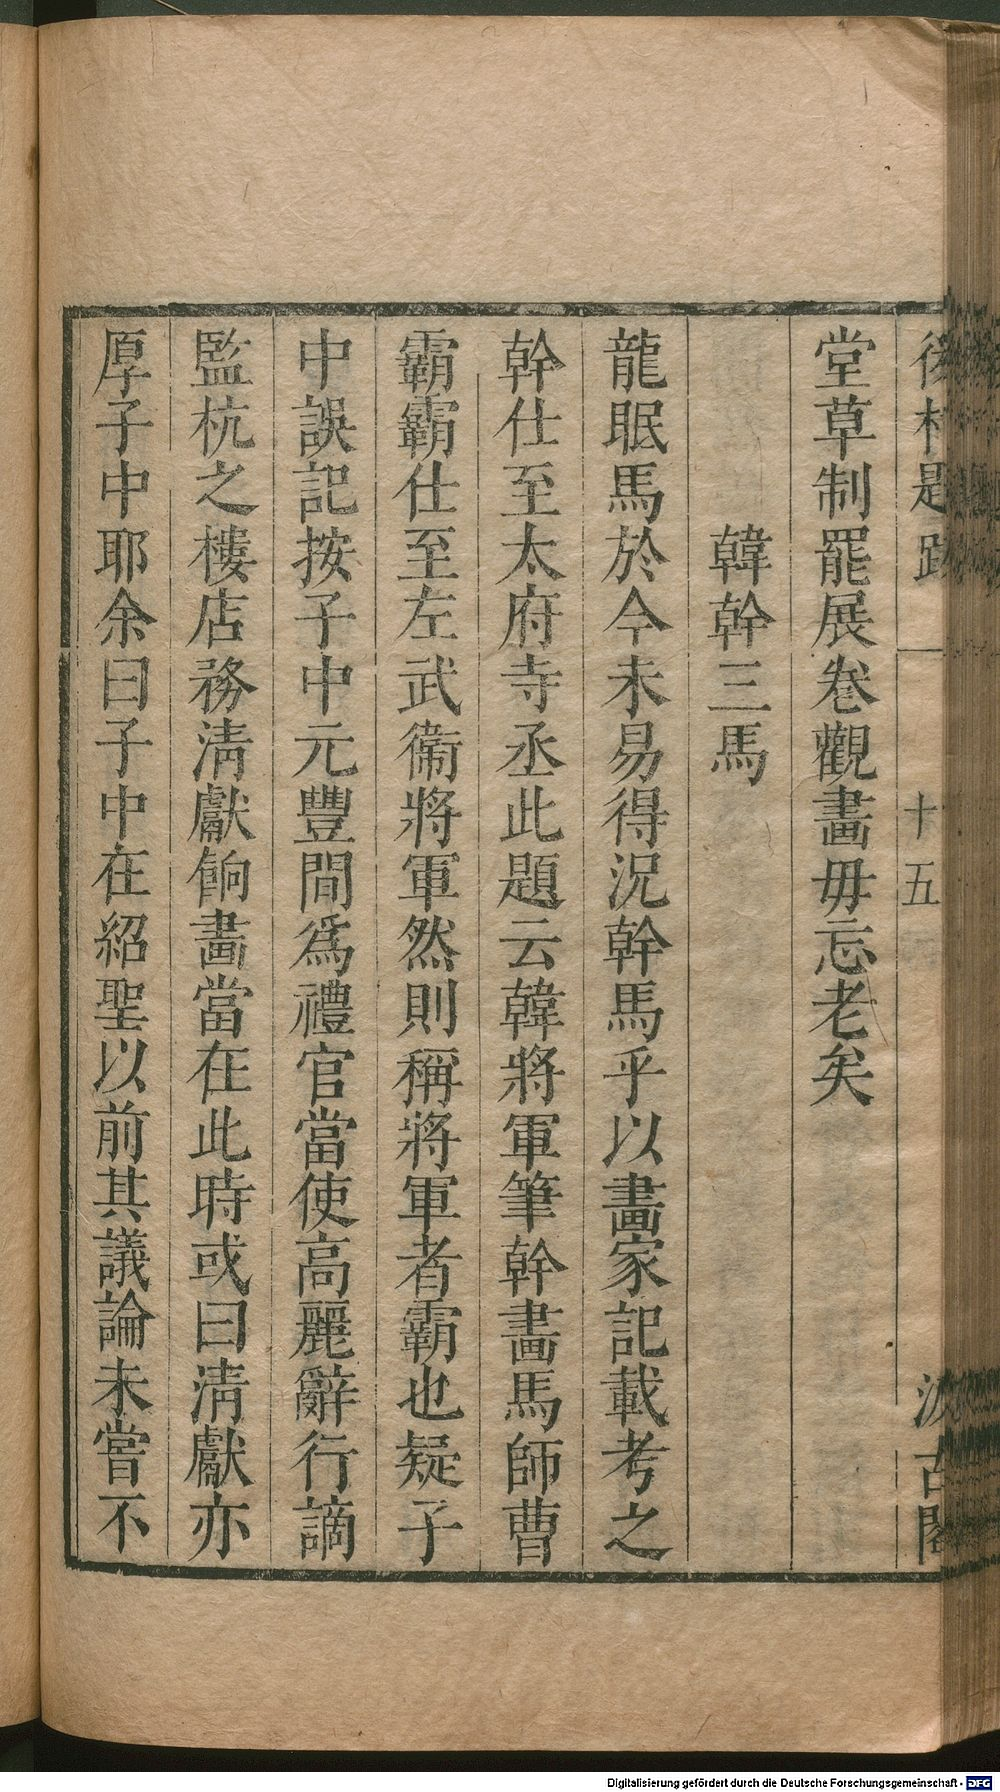 後村題跋 十五 汲古閣
堂草制罷展卷觀畫毋忘老矣
韓幹三馬
龍眠馬於今未易得況幹馬乎以畫家記載考之
幹仕至太府寺丞此題云韓將軍筆幹畫馬師曹
霸霸仕至左武衞將軍然則稱將軍者霸也疑子
中誤記按子中元豐間爲禮官當使高麗辭行謫
監杭之樓店務淸獻餉畫當在此時或曰淸獻亦
厚子中耶余曰子中在紹聖以前其議論未嘗不
Digitalisierung gefördert durch die Deutsche Forschungsgemeinschaft - DFG